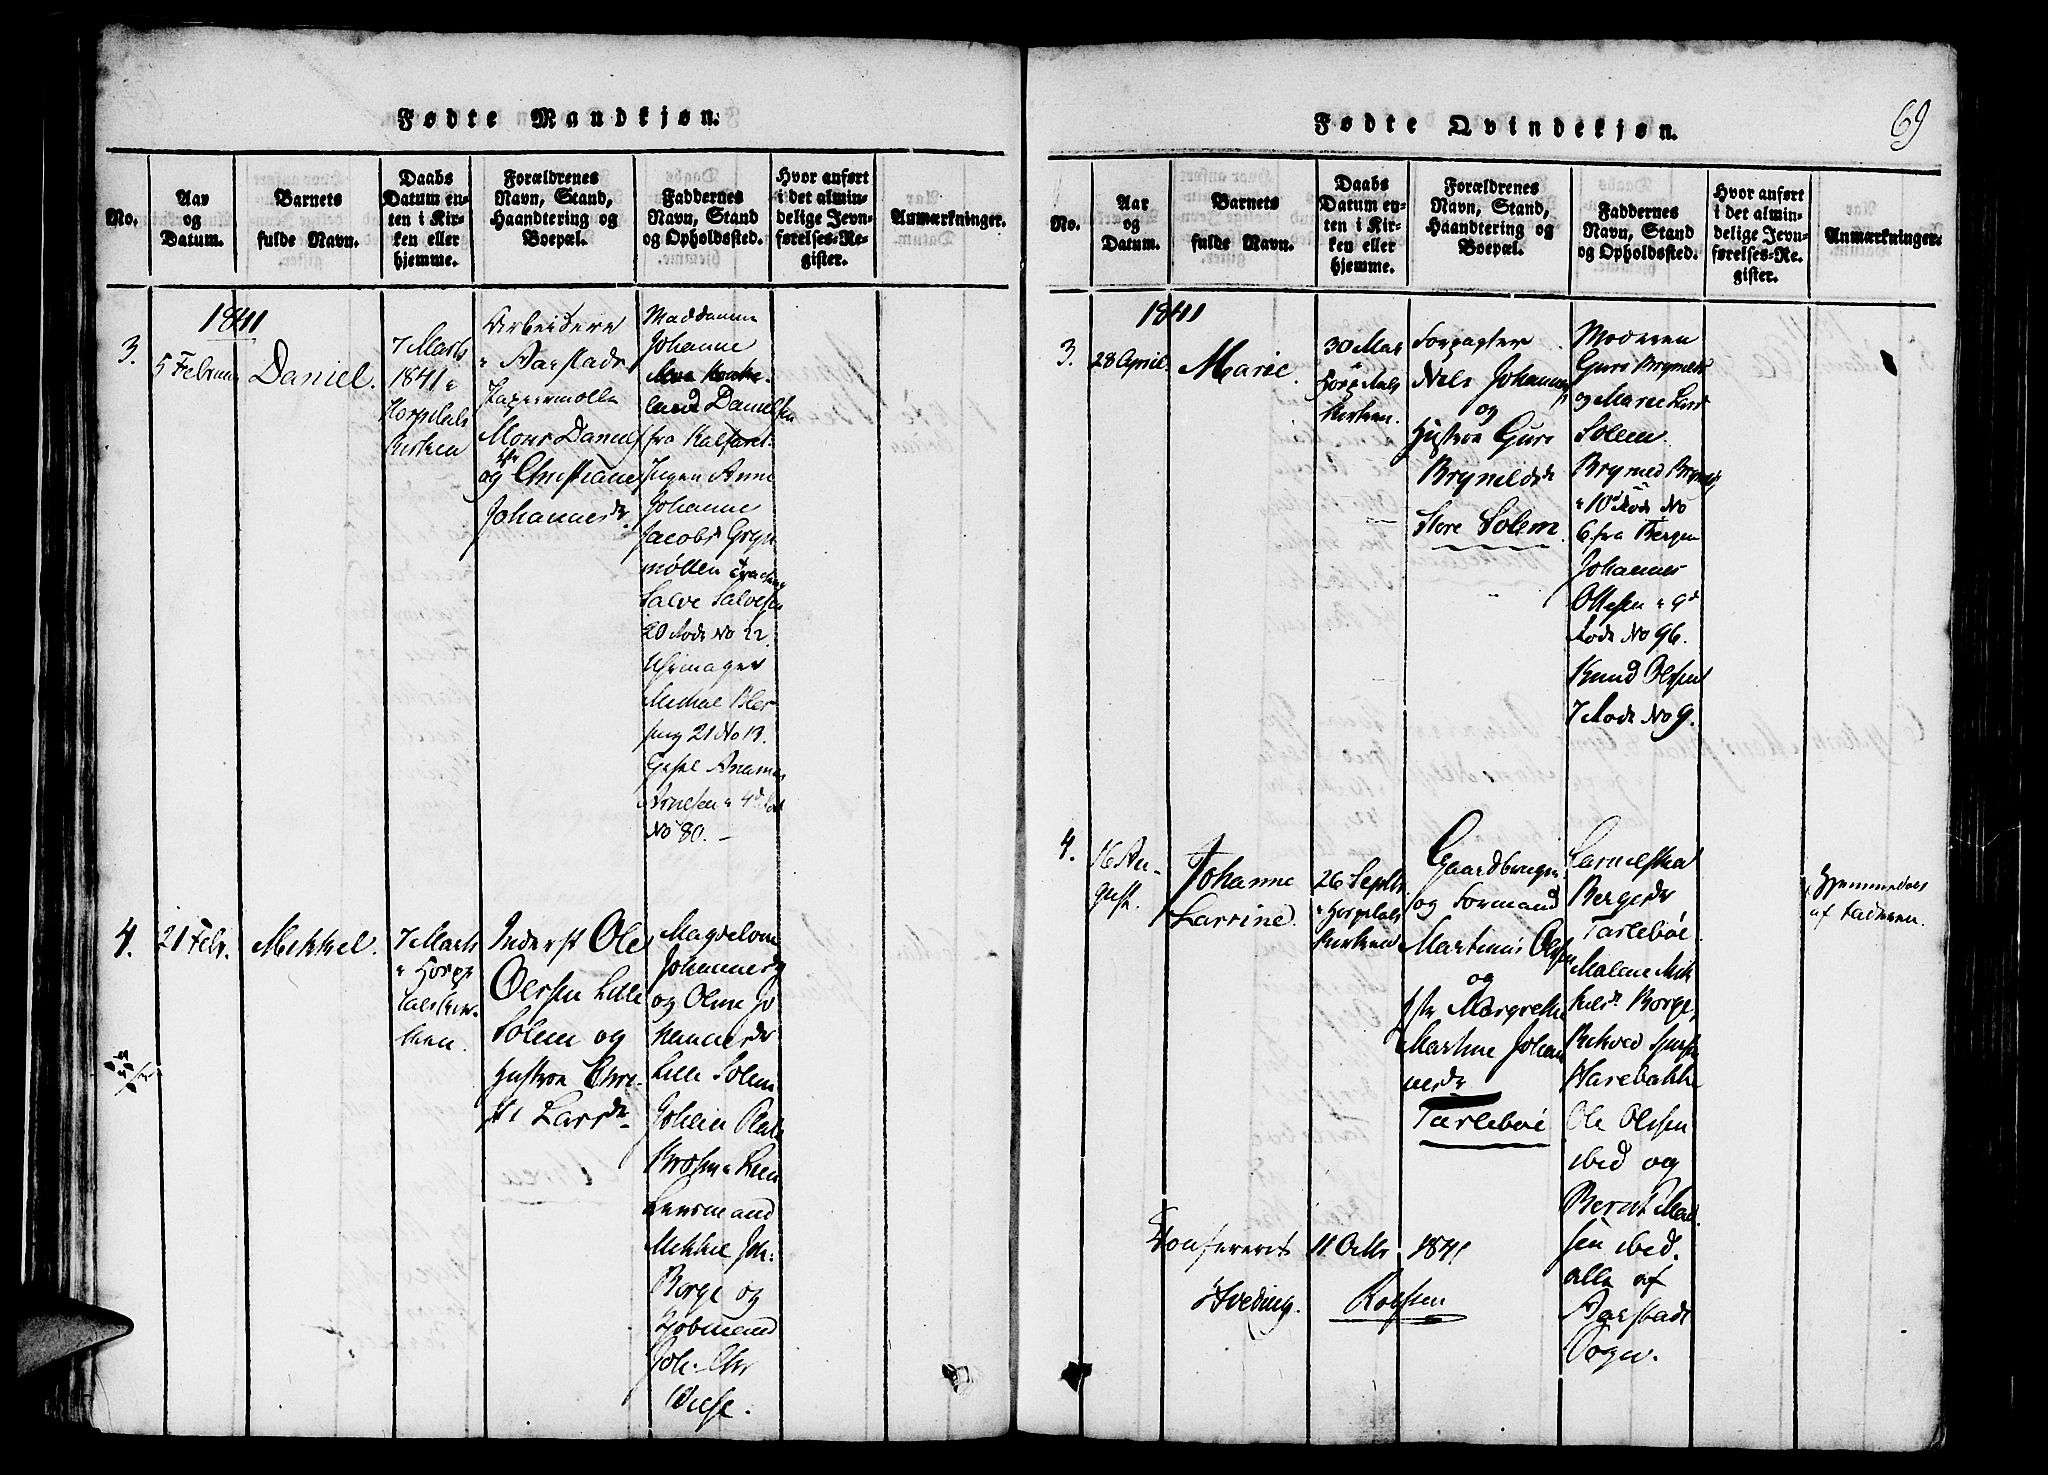 69
Fødte Mandkjøn.
No.
Aar
og
Datum.
Barnets
fulde Navn.
Daabs
Datum en-
ten i Kir-
ken eller
hjemme.
Forældrenes
Navn, Stand,
Haandtering og
Boepæl.
Faddernes
Navn, Stand
og Opholdssted.
Hvor anført
i det almin-
delige Jevn-
førelses-Re-
gister.
Anmærkninger.
1841
3.
5 Februar
Daniel.
7 Marts
1841
Hospitals
Kirken
Arbeidere
Aarstads
Papiermølle
Mons Daniels
og Christiane
Johannesd.
Maddamme
Johanne
Danielsen
fra Kalfaret.
Jngen Anne
Johanne
Jacobs Gryn
møllen
Salve Salvesen
20 Rode No 22.
Uhrmager
Michael
21 No 13.
Arnesen 4d Rod
No 80.
4.
21 Febr.
Mikkel.
7 Marts
Hospi
talskir-
ken.
Inderst Ole
Olessen Lille
Solem og
Hustroe Chri-
sti Larsd.
Magdelone
Johannesd
og Oline Jo
hannesd
Lille Solem
Leen
Lensmand
Mikkel Joh.
Borge og
Kjøbmand
Joh. Chr
Wiese.
Fødte Qvindekjøn.
No.
Aar
og
Datum.
Barnets
fulde Navn.
Daabs
Datum en-
ten i Kir-
ken eller
hjemme.
Forældrenes
Navn, Stand,
Haandtering og
Boepæl.
Faddernes
Navn, Stand
og Opholdssted.
Hvor anført
i det almin-
delige Jevn-
førelses-Re-
gister.
Anmærkninger.
1841
3.
28 April.
Marie.
30 Mai
Hospitals
Kirken.
Forpagter
Nils Johannes
og
Hustroe Guri
Brynildsd.
Store Solem.
Moderen
Guri Brynilds
og Marie
Solem.
10d Rode No
6 fra Bergen
Johannes
Ottesen 9d
Rode No 96.
Knud Olsen
7 Rode No 9.
4.
16 Au-
gust.
Johanne
Larrine.
26 Septbr.
Hospitals
kirken
Gaardbruger
og Formand
Martinus Olsen
og
Hstr Margrethe
Martine Johan
nesd.
Tarlebøe
Bergesd
Tarlebøe.
Malene Mik
kelsd. Borge,
Harebakke
Ole Olssen
ibid og
Bernt Mad
sen ibid.
alle af
Aarstads
Sogn.
Hjemmedøbt
af Faderen.
Confereret 11 Octbr 1841
Hveding. Rolfsen